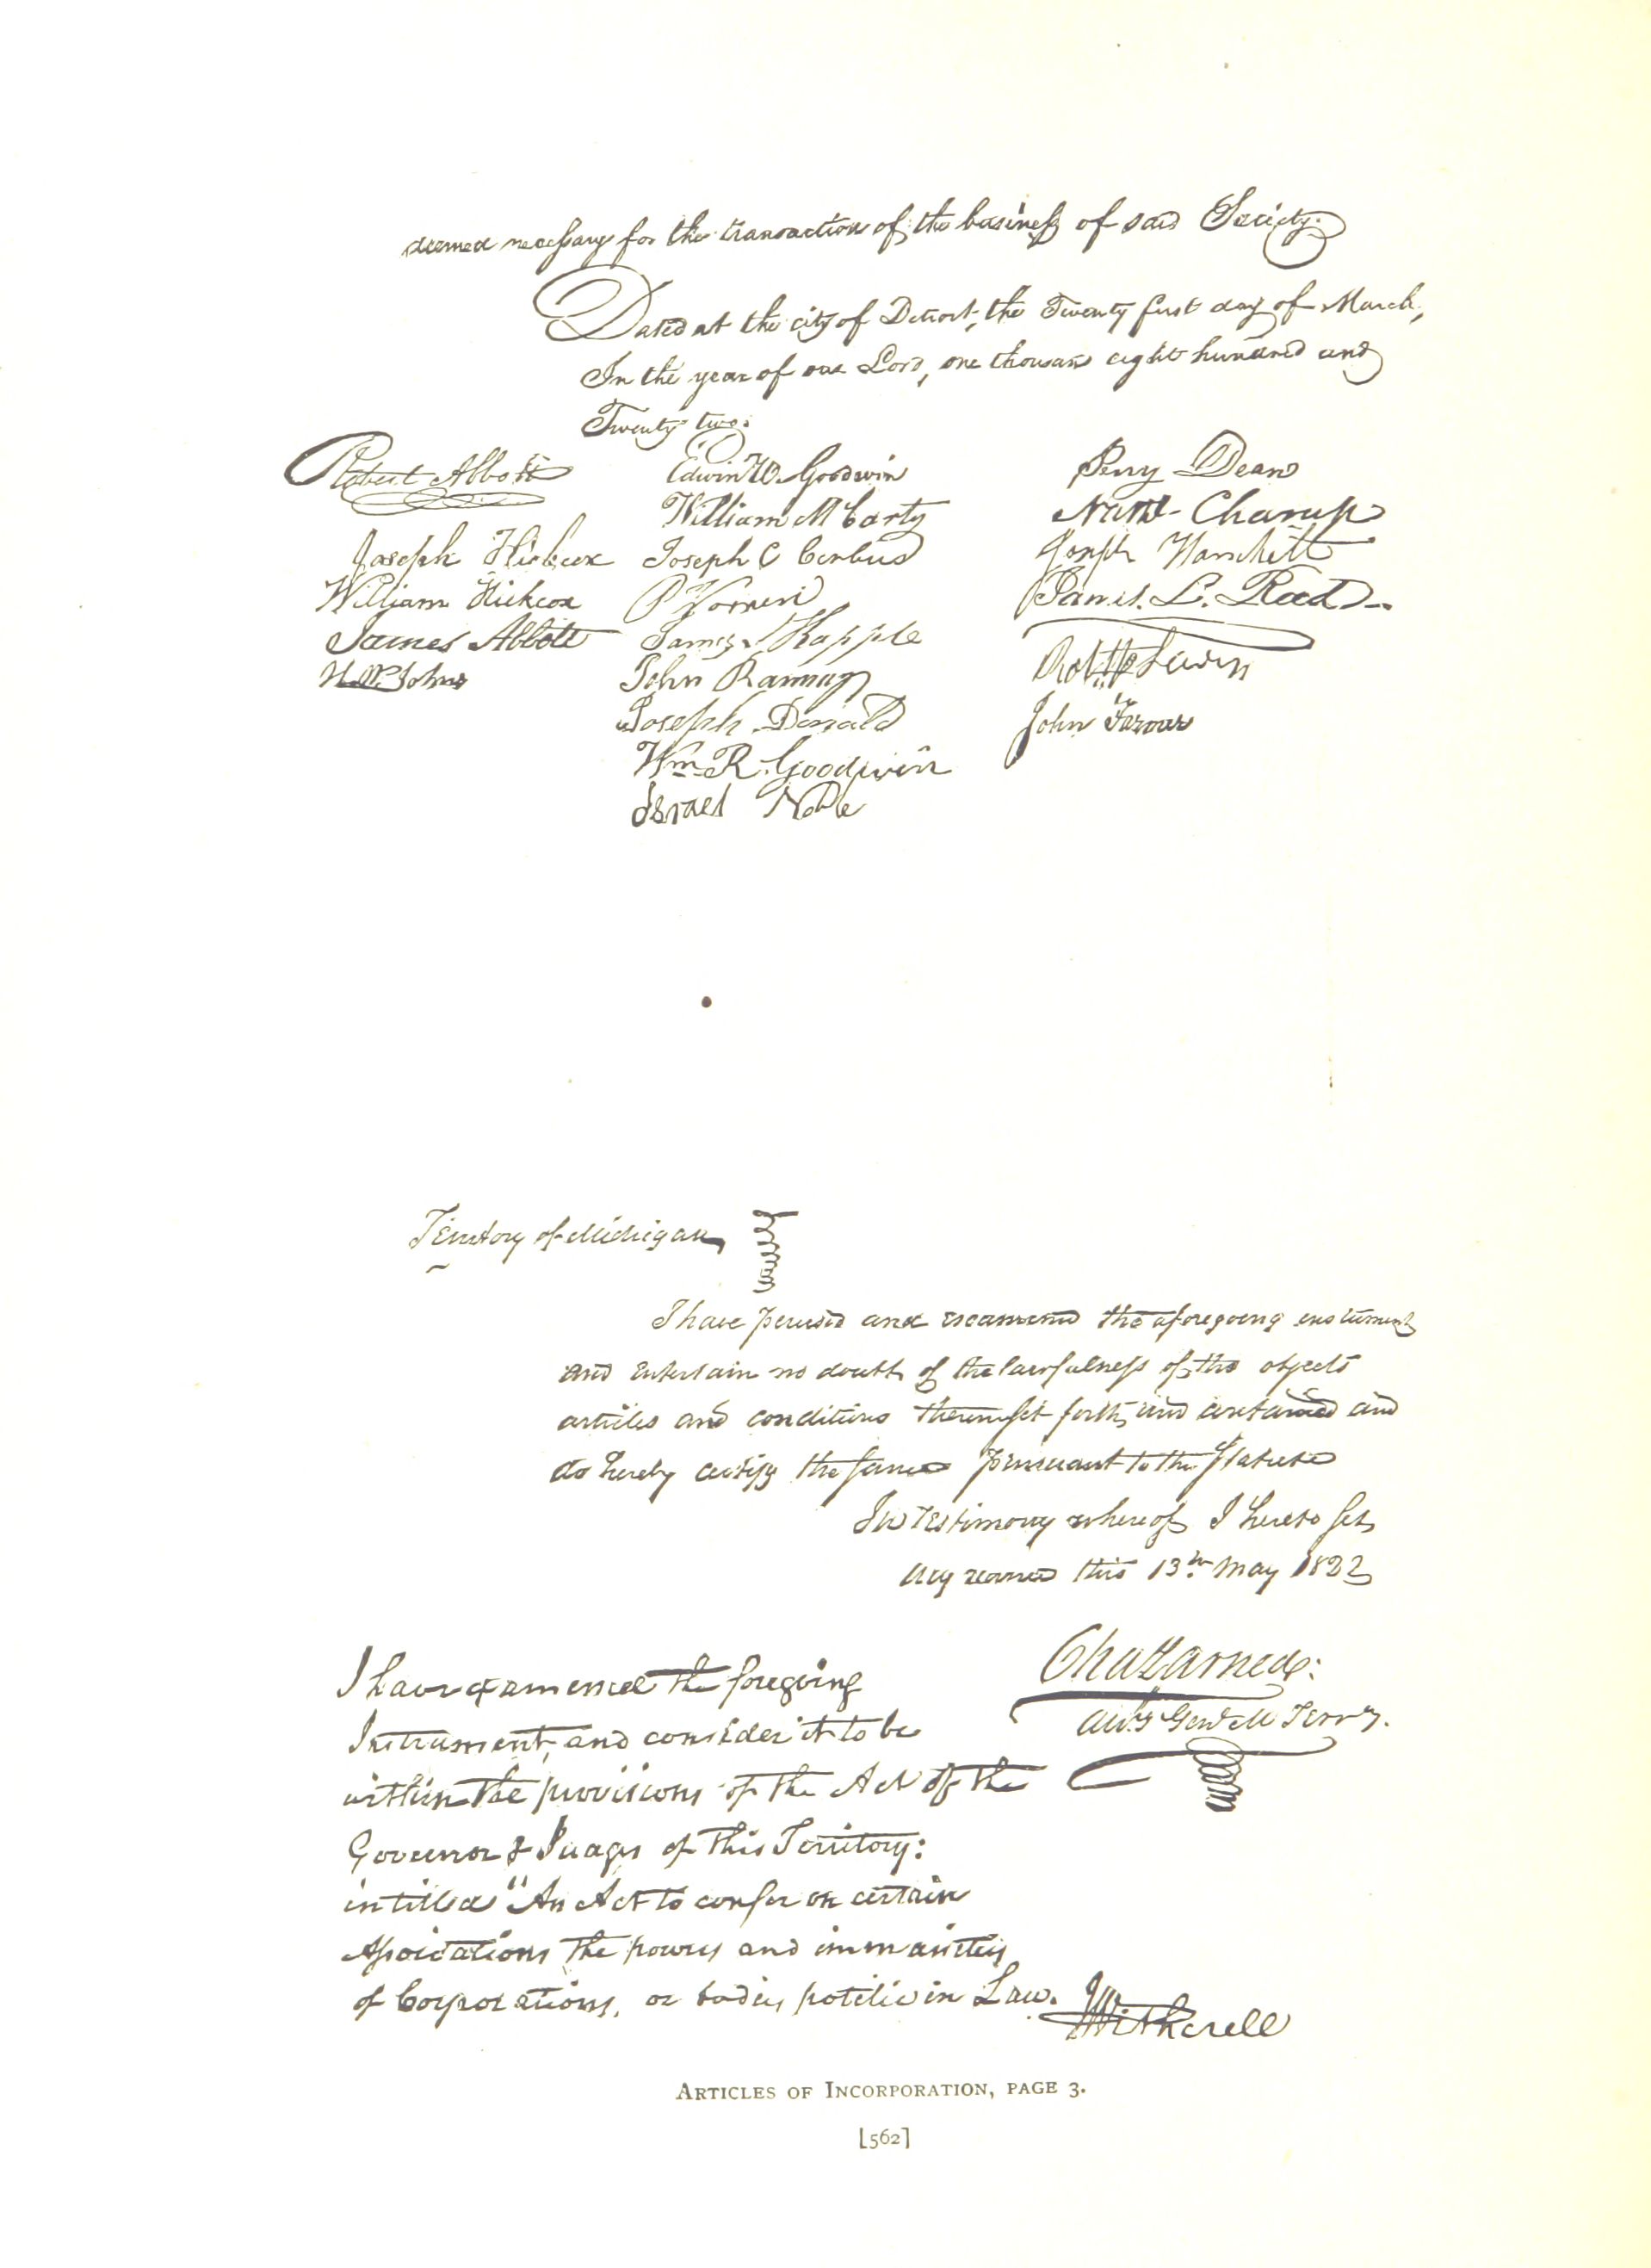 deemed necessary for the transaction of the business of said Society.
Dated at the city of Detroit, the Twenty first day of March,
In the year of our Lord, one thousand eight hundred and
Twenty two.
Robert Abbott
Joseph Hickcox
William Hickcox
James Abbott
H. W. Johns
Edwin W. Goodwin
William McCarty
Joseph C Corbus
P Warren
James Kapple
John Ramsay
Joseph Donald
Wm R. Goodwin
Israel Noble
Perry Dean
Nathl Champ
Joseph Hanchett
James. L. Read
Robt Lewin
John Farrar
Territory of Michigan
I have perused and examined the aforegoing instrument
and entertain no doubt of the lawfulness of the objects
articles and conditions therein set forth and contained and
do hereby certify the same pursuant to the Statute
In testimony whereof I hereto set
my name this 13th May 1822
Cha Larned:
Atty Genl M Terry.
I have examined the foregoing
Instrument, and consider it to be
within the provisions of the Act of the
Governor & Judges of this Territory:
intitled "An Act to confer on certain
Associations the powers and immunities
of Corporations, or bodies politic in Law.
J Witherell
ARTICLES OF INCORPORATION, PAGE 3.
[562]